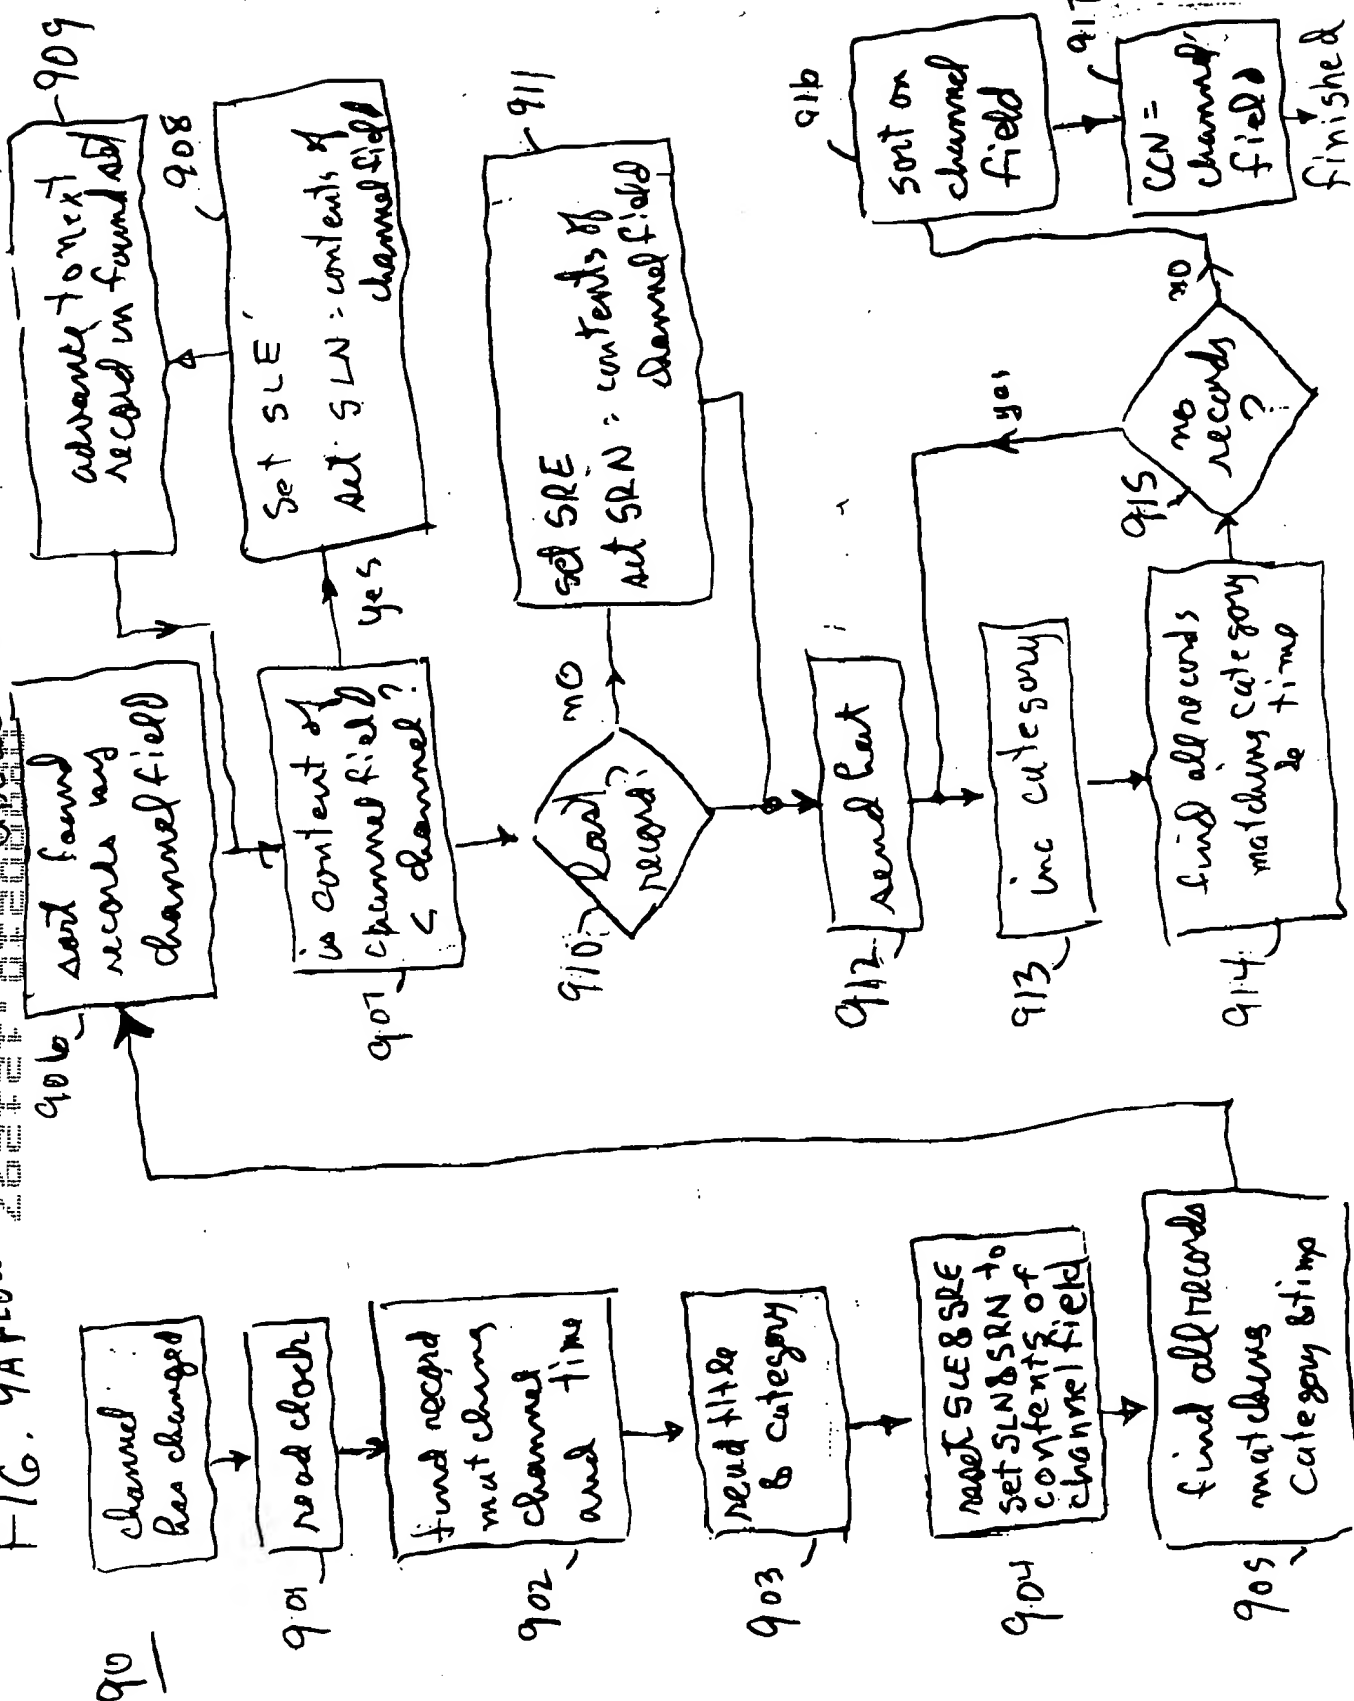 FIG. 9A FLOW
90
channel
has changed
901
read clock
902
find record
matching
channel
and time
903
read title
& category
904
reset SLE & SRE
set SLN & SRN to
contents of
channel field
905
find all records
matching
category & time
906
sort found
records by
channel field
907
is content of
channel field
< channel?
yes
908
Set SLE
set SLN = contents of
channel field
909
advance to next
record in found set
910
last
record?
no
911
set SRE
set SRN = contents of
channel field
912
send hat
913
inc category
914
find all records
matching category
& time
915
no
records
?
yes
no
916
sort on
channel
field
917
CCN =
channel
field
finished